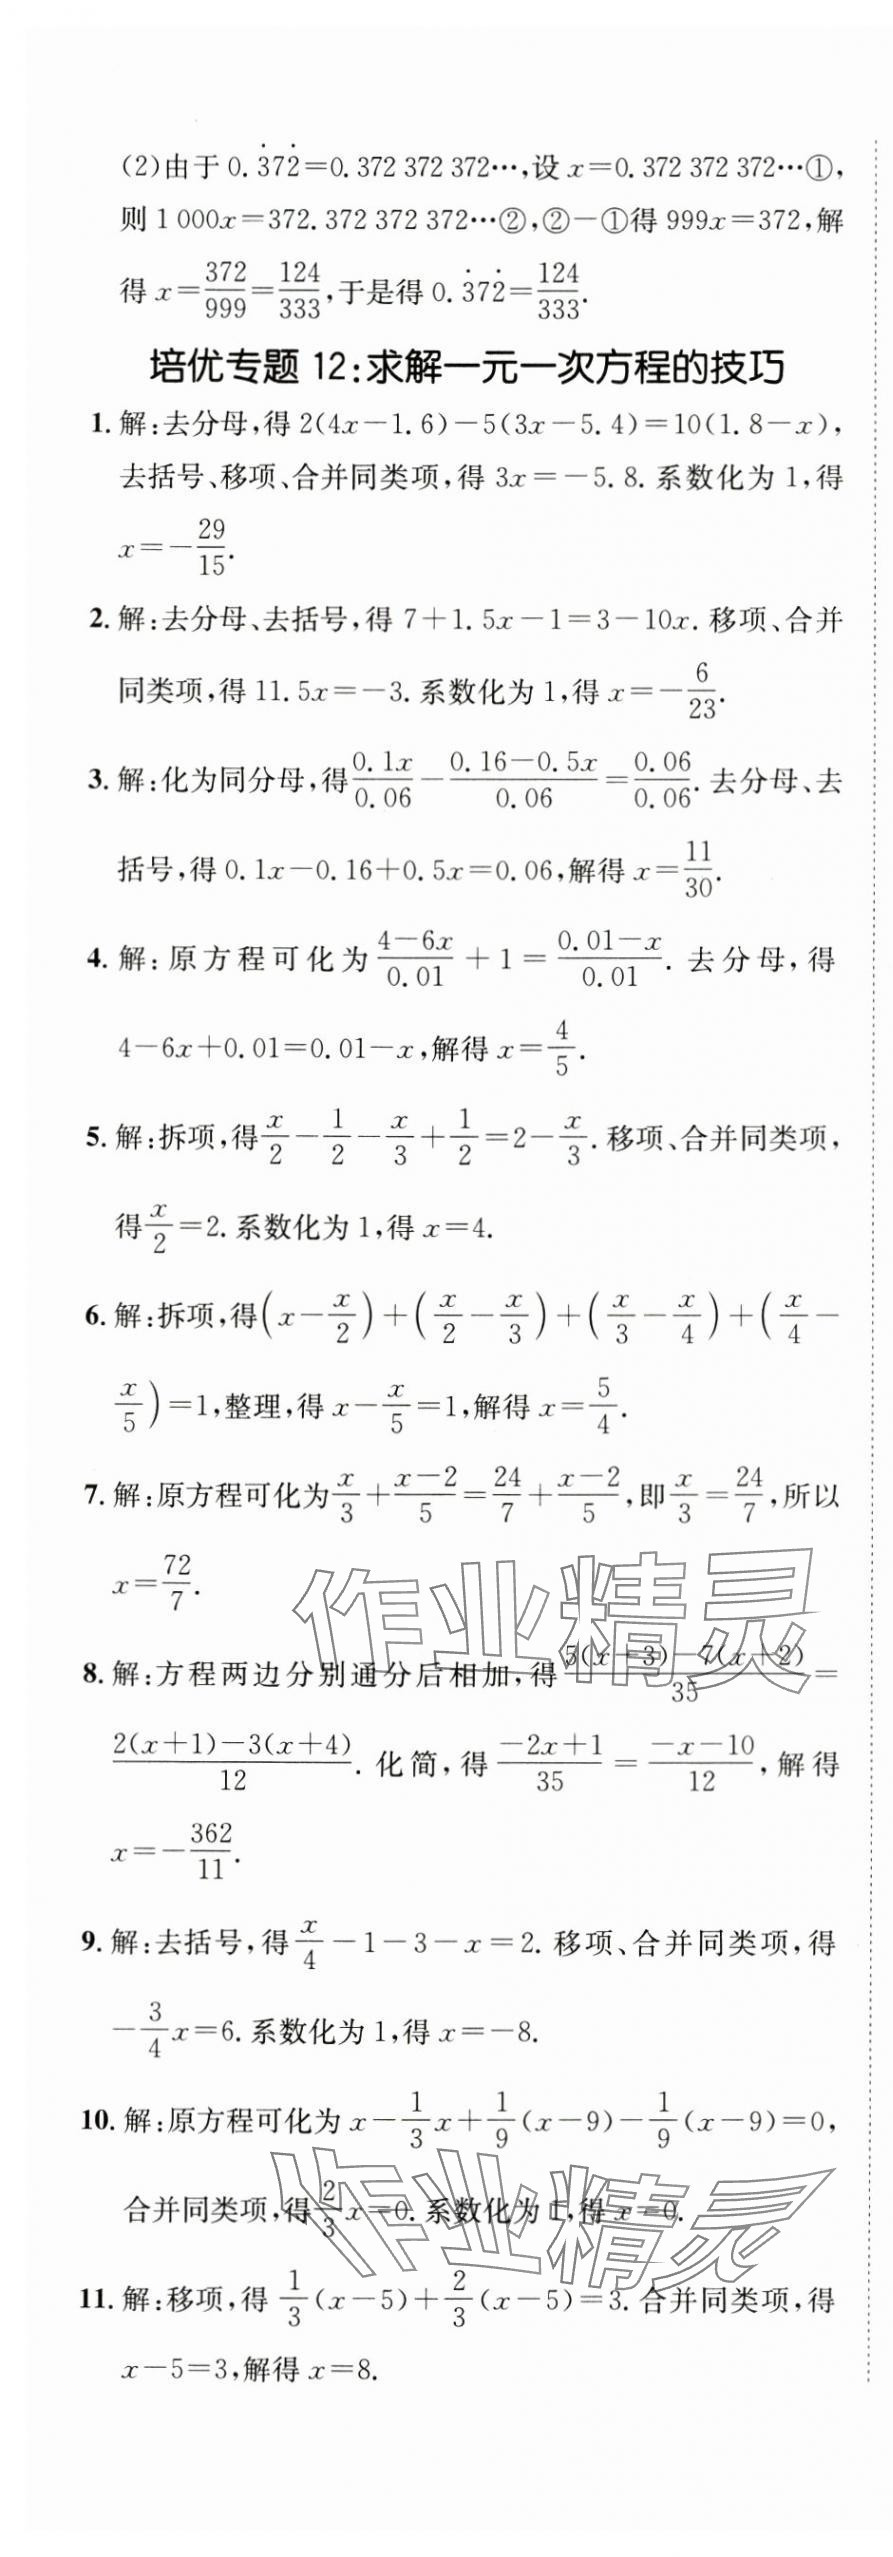 (2)由于0.3̇72̇=0.372 372 372⋯,设x=0.372 372 372⋯①,
则1 000x=372.372 372 372⋯②,②-①得999x=372,解
得x=372/999=124/333,于是得0.3̇72̇=124/333.
培优专题12:求解一元一次方程的技巧
1. 解:去分母,得2(4x-1.6)-5(3x-5.4)=10(1.8-x),
去括号、移项、合并同类项,得3x=-5.8.系数化为1,得
x=-29/15.
2. 解:去分母、去括号,得7+1.5x-1=3-10x.移项、合并
同类项,得11.5x=-3.系数化为1,得x=-6/23.
3. 解:化为同分母,得0.1x/0.06-(0.16-0.5x)/0.06=0.06/0.06.去分母、去
括号,得0.1x-0.16+0.5x=0.06,解得x=11/30.
4. 解:原方程可化为(4-6x)/0.01+1=(0.01-x)/0.01.去分母,得
4-6x+0.01=0.01-x,解得x=4/5.
5. 解:拆项,得x/2-1/2-x/3+1/2=2-x/3.移项、合并同类项,
得x/2=2.系数化为1,得x=4.
6. 解:拆项,得(x-x/2)+(x/2-x/3)+(x/3-x/4)+(x/4-
x/5)=1,整理,得x-x/5=1,解得x=5/4.
7. 解:原方程可化为x/3+(x-2)/5=24/7+(x-2)/5,即x/3=24/7,所以
x=72/7.
8. 解:方程两边分别通分后相加,得(5(x+3)-7(x+2))/35=
(2(x+1)-3(x+4))/12.化简,得(-2x+1)/35=(-x-10)/12,解得
x=-362/11.
9. 解:去括号,得x/4-1-3-x=2.移项、合并同类项,得
-3/4x=6.系数化为1,得x=-8.
10. 解:原方程可化为x-1/3x+1/9(x-9)-1/9(x-9)=0,
合并同类项,得2/3x=0.系数化为1,得x=0.
11. 解:移项,得1/3(x-5)+2/3(x-5)=3.合并同类项,得
x-5=3,解得x=8.
作业精灵
作业精灵